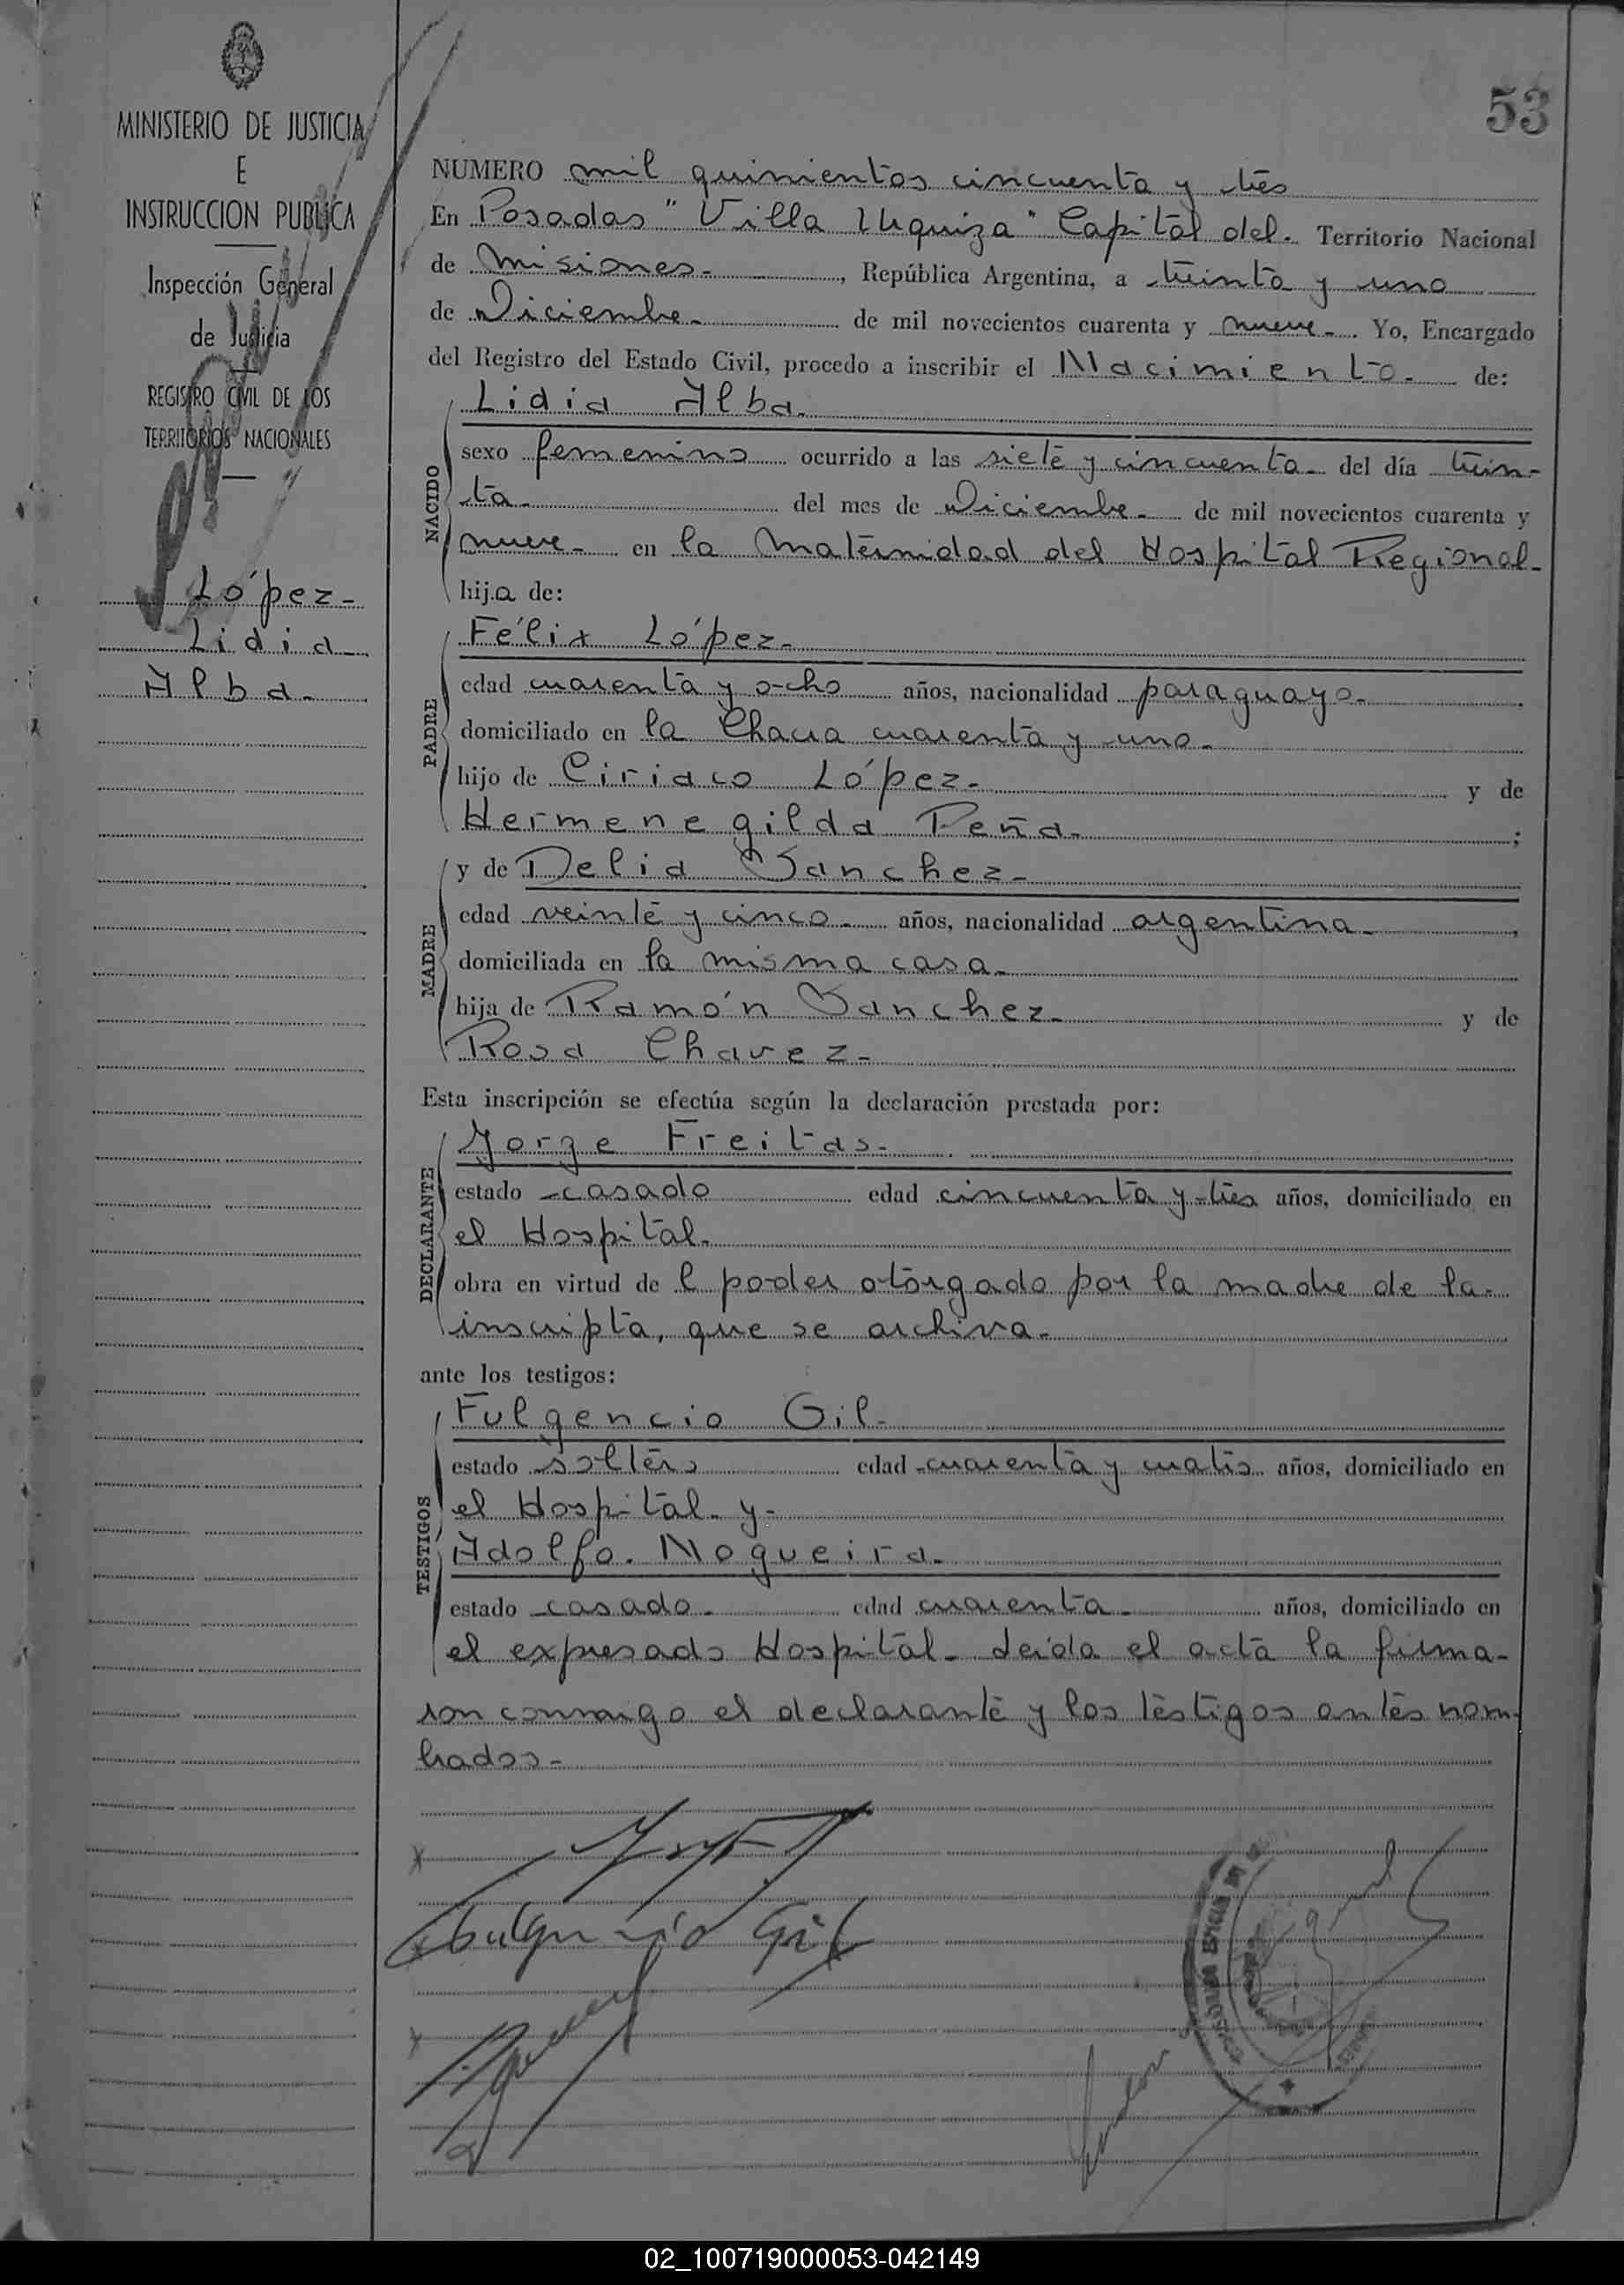 MINISTERIO DE JUSTICIA
E
INSTRUCCION PUBLICA
Inspección General
de Justicia
REGISTRO CIVIL DE LOS
TERRITORIOS NACIONALES
López-
Lidia
Alba-
53
NUMERO mil quinientos cincuenta y tres
En Posadas "Villa Urquiza" Capital del- Territorio Nacional
de Misiones-, República Argentina, a treinta y uno
de Diciembre- de mil novecientos cuarenta y nueve-. Yo, Encargado
del Registro del Estado Civil, procedo a inscribir el Nacimiento- de:
NACIDO
Lidia Alba-
sexo femenino ocurrido a las siete y cincuenta- del día trein-
ta- del mes de Diciembre- de mil novecientos cuarenta y
nueve- en la Maternidad del Hospital Regional-
hija de:
PADRE
Félix López-
edad cuarenta y ocho años, nacionalidad paraguayo-
domiciliado en la Chacra cuarenta y uno-
hijo de Ciriaco López- y de
Hermenegilda Peña- ;
MADRE
y de Delia Sanchez-
edad veinte y cinco- años, nacionalidad argentina-
domiciliada en la misma casa-
hija de Ramón Sanchez- y de
Rosa Chavez-
Esta inscripción se efectúa según la declaración prestada por:
DECLARANTE
Jorge Freitas-
estado casado edad cincuenta y tres años, domiciliado en
el Hospital-
obra en virtud de l poder otorgado por la madre de la-
inscripta, que se archiva-
ante los testigos:
TESTIGOS
Fulgencio Gil-
estado soltero edad cuarenta y cuatro años, domiciliado en
el Hospital- y-
Adolfo Nogueira-
estado casado- edad cuarenta- años, domiciliado en
el expresado Hospital- Leída el acta la firma-
ron conmigo el declarante y los testigos antes nom-
brados-
Fulgencio Gil
02_100719000053-042149